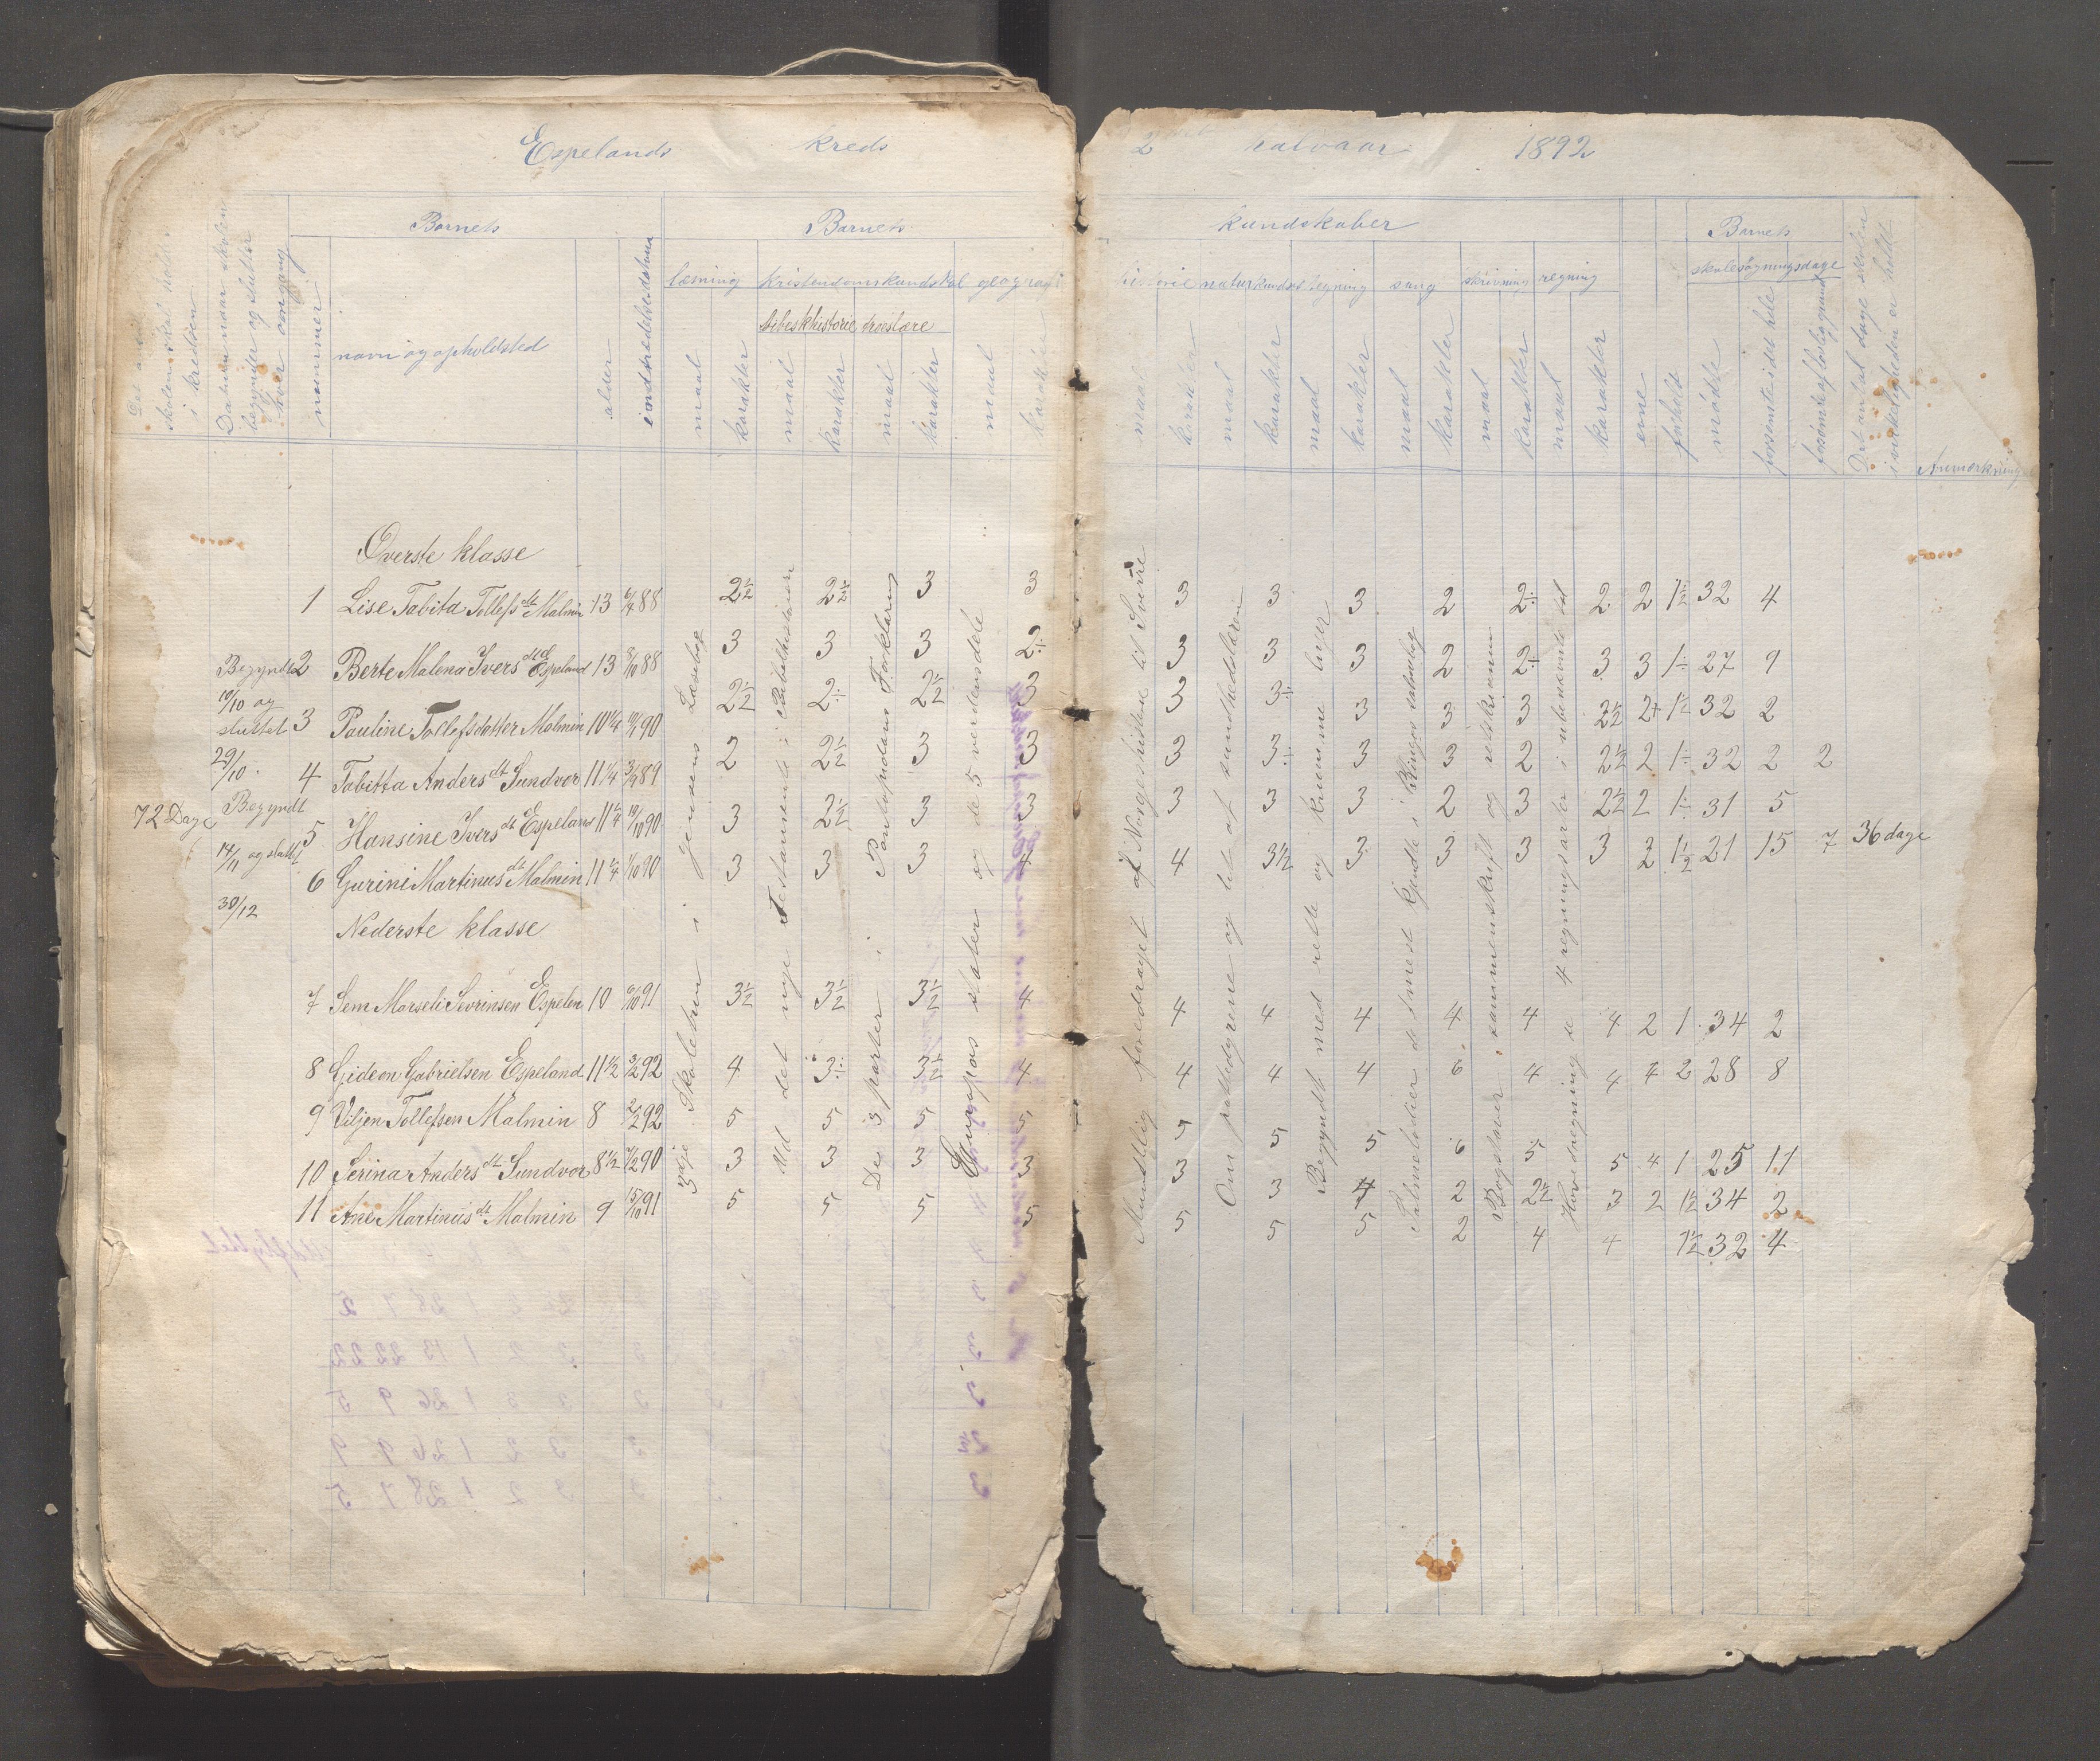 Espelands kreds 2 halvaar 1892
Barnets
Barnets
kundskaber
Barnets
læsning kristendomskundskab geografi historie naturkundskab tegning sang skrivning regning skolesøgningsdage
bibelskhistorie troeslære
i kredsen
Datum naar skolen
begynder og slutter
hver omgang
nummer
navn og opholdsted
alder
indtrædelsesdatum
maal karakter maal karakter maal karakter maal karakter
maal karakter maal karakter maal karakter maal karakter maal karakter maal karakter
evne
forhold
mødte
forsømte i det hele
Det antal dage skolen
i virkeligheden er holdt
Anmærkning
Øverste klasse
1 Lise Tabita Tollefs dt Malmin 13 6/4 88 2½ 2½ 3 3 3 3 3 2 2÷ 2 2 1½ 32 4
2 Berte Malena Ivers dt Espeland 13 8/10 88 3 3 3 2÷ 3 3 3 2 2÷ 3 3 1÷ 27 9
3 Pauline Tollefsdatter Malmin 10¼ 10/1 90 2½ 2÷ 2½ 3 3 3÷ 3 3 3 2½ 2+ 1½ 32 2
4 Tabitta Anders dt Sundvor 11¼ 3/9 89 2 2½ 3 3 3 3÷ 3 3 2 2½ 2 1÷ 32 2 2
5 Hansine Ivers dt Espeland 11¼ 10/10 90 3 2½ 3 3 3 3 3 2 3 2½ 2 1÷ 31 5
6 Gurini Martinus dt Malmin 11¼ 1/10 90 3 3 3 4 4 3½ 3 3 3 3 2 1½ 21 15 7 36 dage
Begyndt
10/10 og
sluttet
29/10.
Begyndt
14/11 og slutt
30/12
72 Dage
Nederste klasse
7 Sem Marseli Sevrinsen Espelan 10 6/10 91 3½ 3½ 3½ 4 4 4 4 4 4 4 2 1 34 2
8 Gideon Gabrielsen Espeland 11½ 3/2 92 4 3÷ 3½ 4 4 4 4 6 4 4 4 2 28 8
9 Viljen Tollefsen Malmin 8 2/2 92 5 5 5 5 5 5 5 6 5 5 4 1 25 11
10 Serina Anders dt Sundvor 8½ 1/2 90 3 3 3 3 3 3 4 2 2½ 3 2 1½ 34 2
11 Ane Martinus dt Malmin 9 15/10 91 5 5 5 5 5 5 5 2 4 4 1½ 32 4
3dje Skoletrin i Jensens Læsebog
Ud det nye Testamente i Bibelhistorien
De 3 parter i Pontopidans Forklaring
Europas stater og de 5 verdensdele
Mundtlig foredraget af Norgeshistorie til Sverre
Om pattedyrene og lit af sundhedslæren
Begyndt med rette og krumme linjer
Salmelodier de mest kjendte i
Bogstaver sammenskrift og retskrivning
Hovedregning de 4 regningsarter i ubenævnte tal